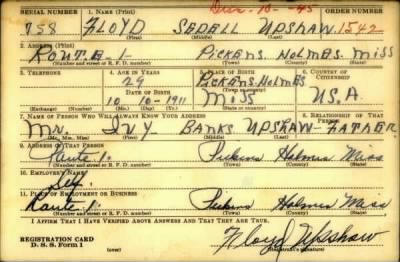 SERIAL NUMBER 1. NAME (Print) ORDER NUMBER
758 FLOYD SEDELL UPSHAW 1542
(First) (Middle) (Last)
2. ADDRESS (Print)
ROUTE-1 PICKENS. HOLMES. MISS
(Number and street or R. F. D. number) (Town) (County) (State)
3. TELEPHONE 4. AGE IN YEARS 5. PLACE OF BIRTH 6. COUNTRY OF CITIZENSHIP
29 PICKENS. HOLMES
DATE OF BIRTH (Town) (County)
10-10-1911 MISS U.S.A
(Exchange) (Number) (Mo.) (Day) (Yr.) (State or country)
7. NAME OF PERSON WHO WILL ALWAYS KNOW YOUR ADDRESS 8. RELATIONSHIP OF THAT PERSON
MR. IVY BANKS UPSHAW-FATHER
(Mr., Mrs., Miss) (First) (Middle) (Last)
9. ADDRESS OF THAT PERSON
Route 1. Pickens Holmes Miss
(Number and street or R. F. D. number) (Town) (County) (State)
10. EMPLOYER'S NAME
Self
11. PLACE OF EMPLOYMENT OR BUSINESS
Route 1. Pickens Holmes Miss
(Number and street or R. F. D. number) (Town) (County) (State)
I AFFIRM THAT I HAVE VERIFIED ABOVE ANSWERS AND THAT THEY ARE TRUE.
REGISTRATION CARD
D. S. S. Form 1 (over) Floyd Upshaw
(Registrant's signature)